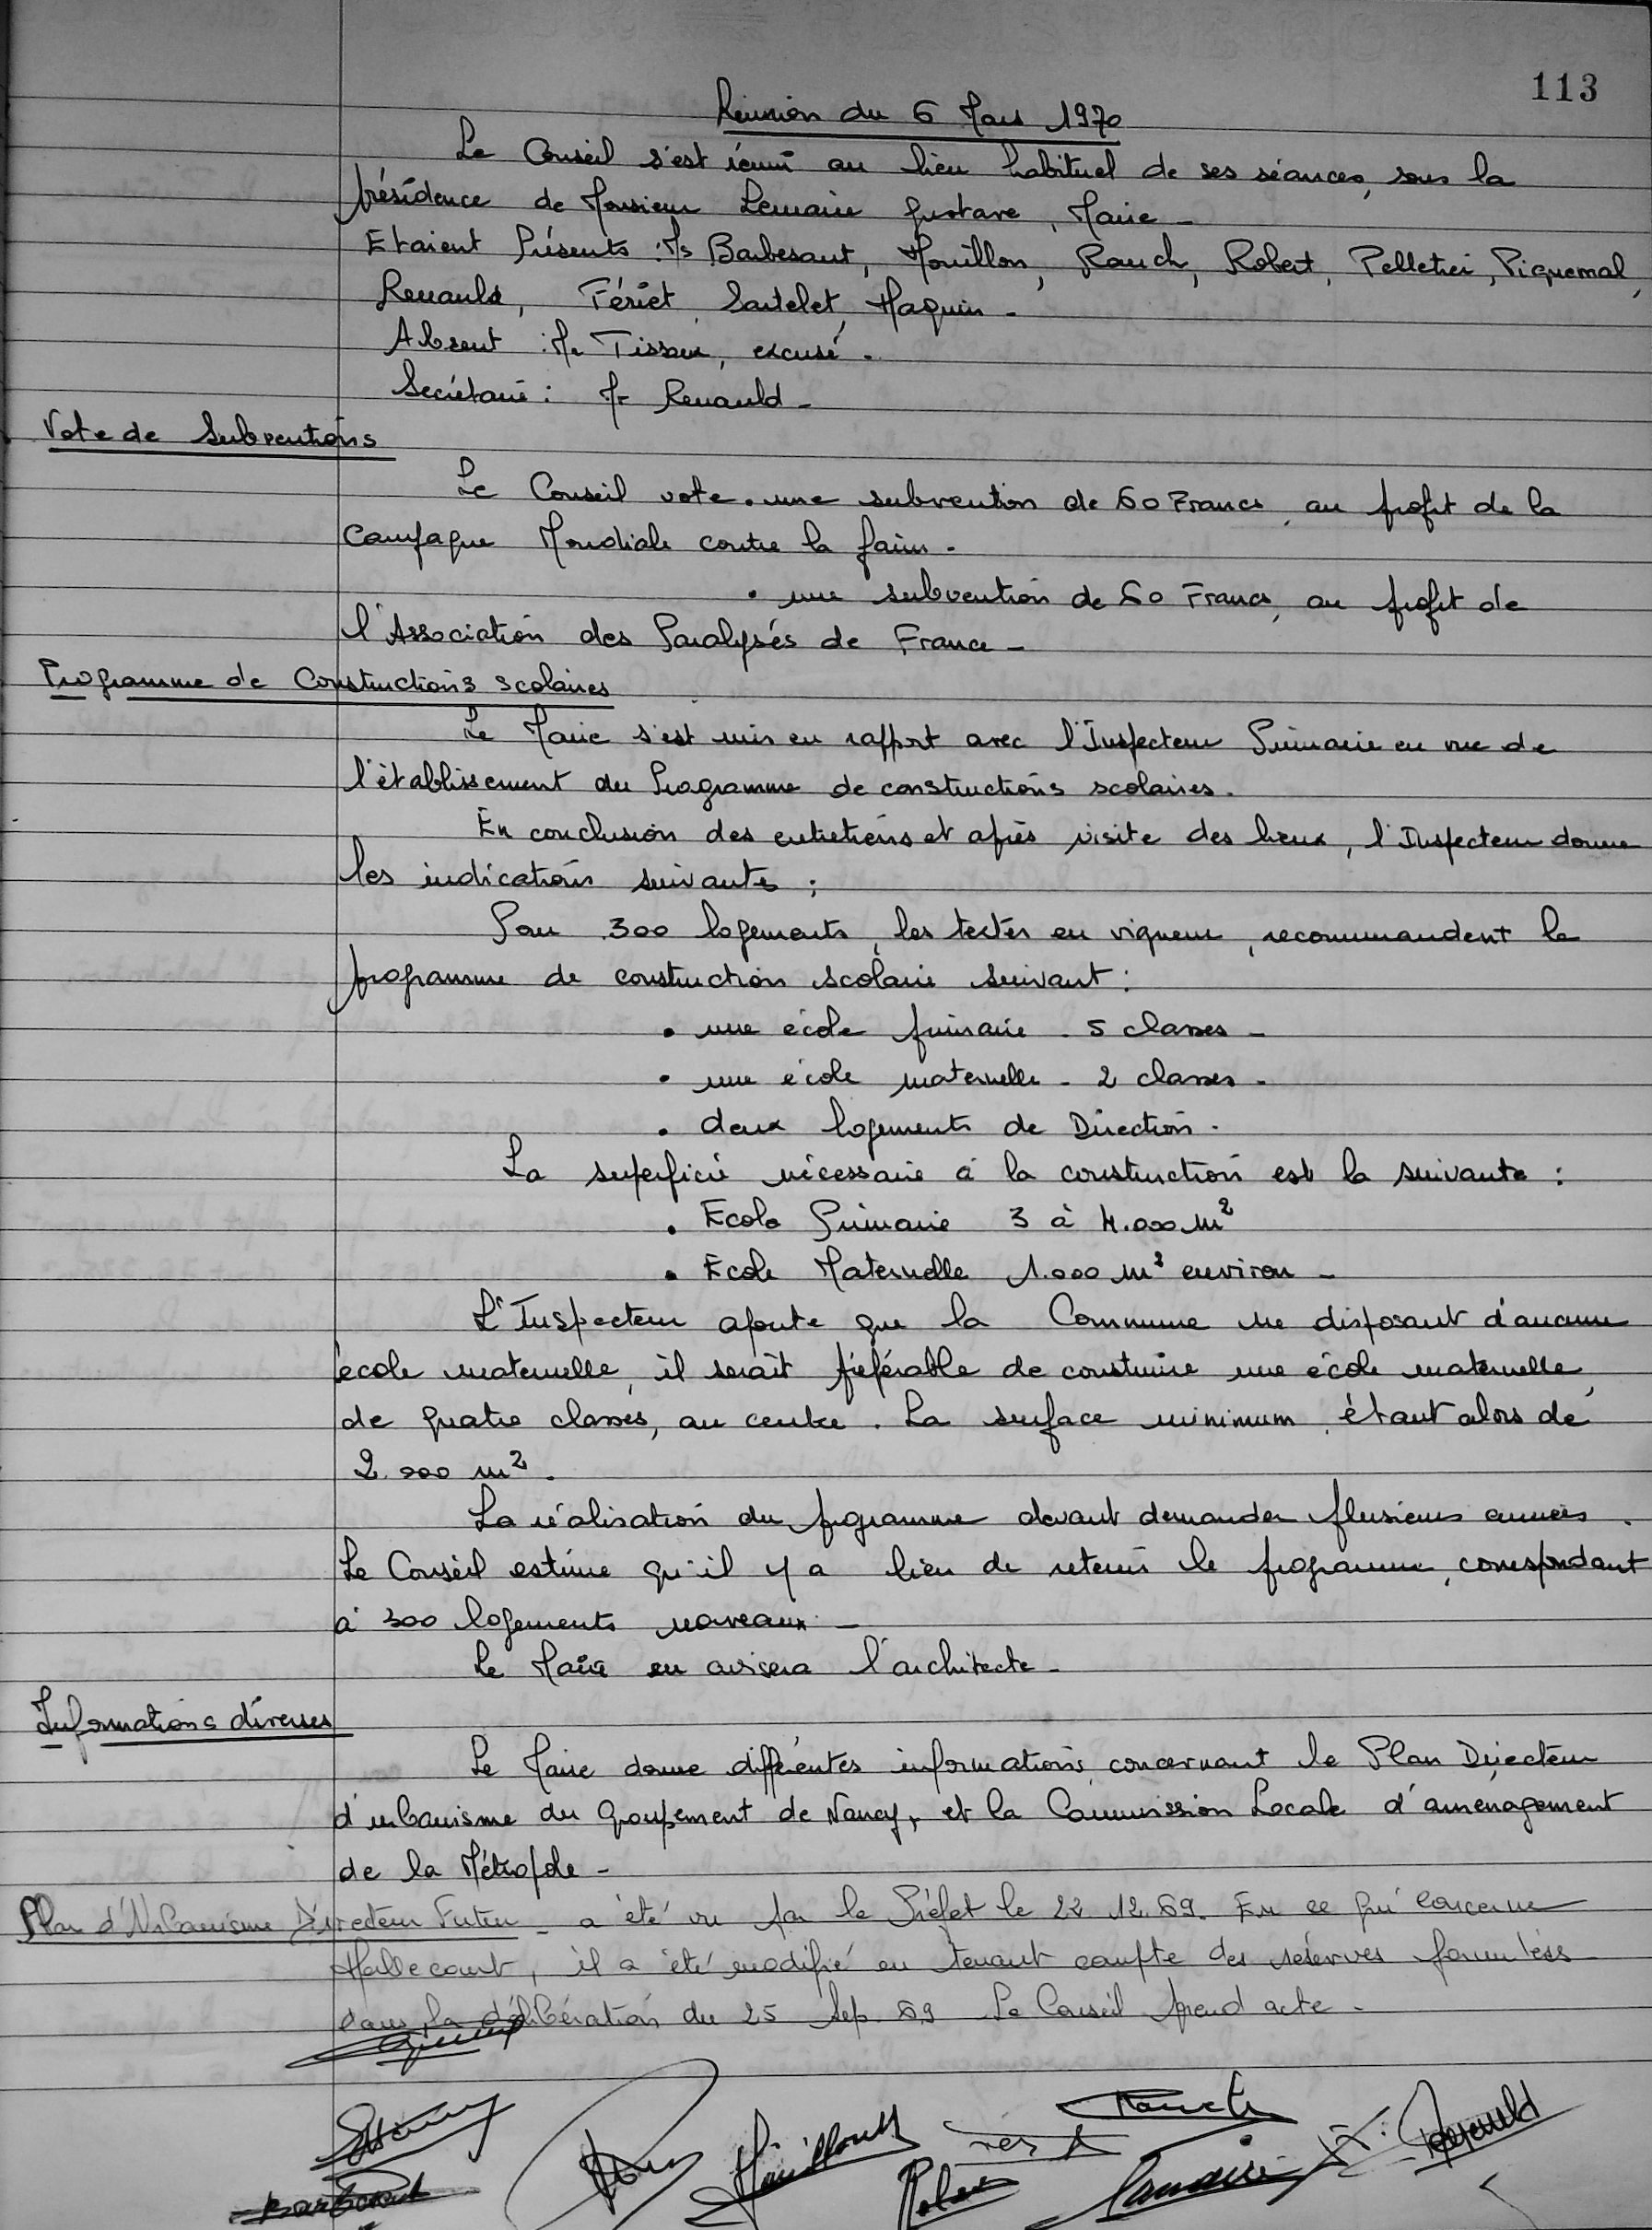 113
Réunion du 6 Mars 1970
Le Conseil s'est réuni au lieu habituel de ses séances, sous la
présidence de Monsieur Lemaire Gustave, Maire -
Etaient Présents : Ms Barbesant, Mouillon, Rauch, Robert, Pelletier, Piquemal,
Renauld, Fériet, Sartelet, Haquin -
Absent : Mr Tissoux, excusé -
Secrétaire : Mr Renauld -
Vote de Subventions
Le Conseil vote • une subvention de 60 Francs, au profit de la
Campagne Mondiale contre la faim -
• une subvention de 60 Francs, au profit de
l'Association des Paralysés de France -
Programme de Constructions scolaires
Le Maire s'est mis en rapport avec l'Inspecteur Primaire en vue de
l'établissement du Programme de constructions scolaires.
En conclusion des entretiens et après visite des lieux, l'Inspecteur donne
les indications suivantes :
Pour 300 logements, les textes en vigueur, recommandent le
programme de construction scolaire suivant :
• une école primaire - 5 classes -
• une école maternelle - 2 classes -
• deux logements de Direction -
La superficie nécessaire à la construction est la suivante :
• Ecole Primaire 3 à 4.000 m²
• Ecole Maternelle 1.000 m² environ -
L'Inspecteur ajoute que la Commune ne disposant d'aucune
école maternelle, il serait préférable de construire une école maternelle,
de quatre classes, au centre. La surface minimum étant alors de
2.000 m².
La réalisation du programme devant demander plusieurs années.
Le Conseil estime qu'il y a lieu de retenir le programme, correspondant
à 300 logements nouveaux -
Le Maire en avisera l'architecte -
Informations diverses
Le Maire donne différentes informations concernant le Plan Directeur
d'urbanisme du Groupement de Nancy, et la Commission Locale d'aménagement
de la Métropole -
Plan d'Urbanisme Directeur Futur - a été vu par le Préfet le 22.12.69. En ce qui concerne
Houdecourt, il a été modifié en tenant compte des réserves formulées
dans la délibération du 25 Sep. 69 Le Conseil prend acte -
Mouillon
Rauch
Robert
Lemaire
Renauld
Barbesant